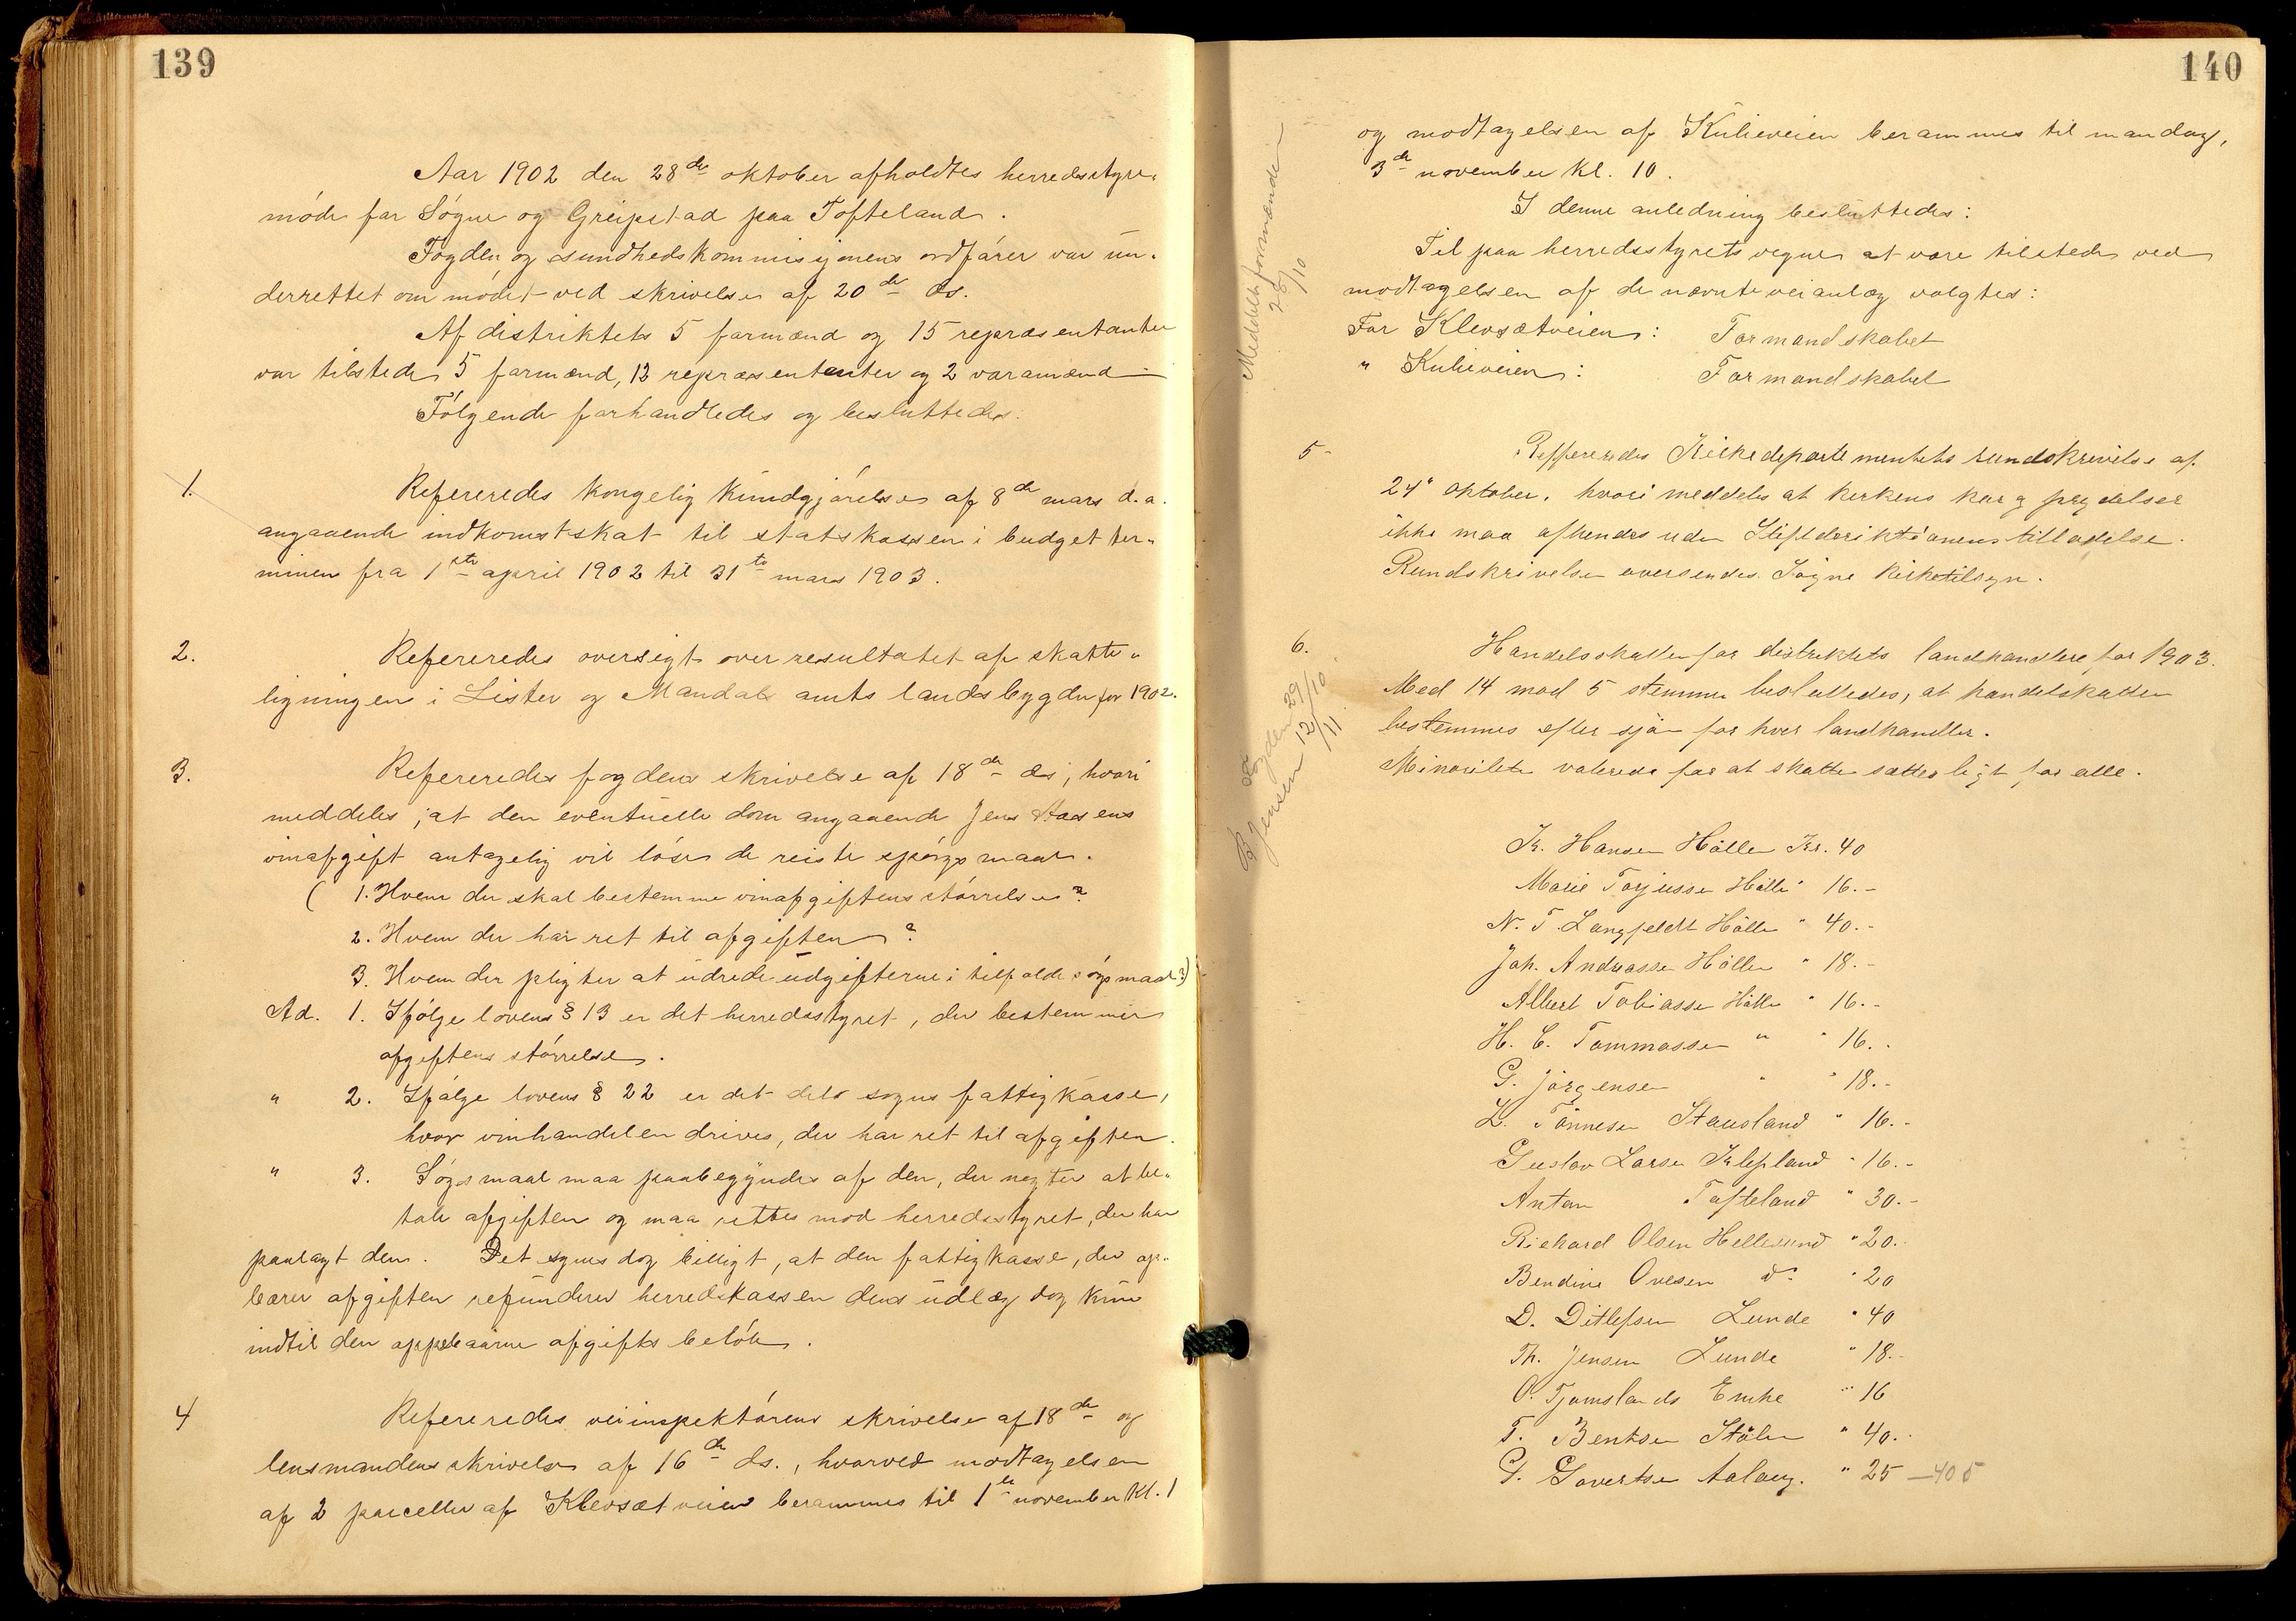 139
Aar 1902 den 28de oktober afholdtes herredsstyre-
möde for Sögne og Greipstad paa Tofteland.
Fogden og sundhedskommisjonens ordförer var un-
derrettet om mödet ved skrivelse af 20de ds.
Af distriktets 5 formænd og 15 repræsentanter
var tilstede 5 formænd, 12 repræsentanter og 2 varamænd
Fölgende forhandledes og besluttedes:
1. Refereredes kongelig kundgjörelse af 8de mars d.a.
angaaende indkomstskat til statskassen i budgetter-
minen fra 1ste april 1902 til 31te mars 1903.
2. Refereredes oversigt over resultatet af skatte-
ligningen i Lister og Mandals amts landsbygder for 1902.
3. Refereredes fogdens skrivelse af 18de ds, hvori
meddeles, at den eventuelle dom angaaende Jens Aasens
vinafgift antagelig vil löse de reiste spörgsmaal.
( 1. Hvem der skal bestemme vinafgiftens störrelse?
2. Hvem der har ret til afgiften?
3. Hvem der pligter at udrede udgifterne i tilfælde sögsmaal?)
Ad. 1. Ifölge lovens § 13 er det herredsstyret, der bestemmer
afgiftens störrelse.
" 2. Ifölge lovens § 22 er det dets sogns fattigkasse,
hvor vinhandelen drives, der har ret til afgiften.
" 3. Sögsmaal maa paabegyndes af den, der negter at be-
tale afgiften og maa rettes mod herredsstyret, der har
paalagt den. Det synes dog billigt, at den fattigkasse, der op-
bærer afgiften refunderer herredskassen dens udlæg dog kun
indtil den oppebaarne afgifts belöb.
4 Refereredes veiinspektörens skrivelse af 18de og
lensmandens skrivelse af 16de ds., hvorved modtagelsen
af 2 parceller af Klevsætveien berammes til 1ste november kl. 1
140
og modtagelsen af Kulieveien berammes til mandag,
3de november kl. 10.
I denne anledning besluttedes:
Til paa herredsstyrets vegne at være tilstede ved
modtagelsen af de nævnte veianlæg valgtes:
For Klevsætveien: Formandskabet
" Kulieveien: Formandskabet
Meddelt formændene
28/10
5- Reffereredes Kirkedepartementets rundskrivelse af
24' oktober, hvori meddeles at kirkens kar og prydelser
ikke maa afhendes uden Stiftsdirektionens tilladelse.
Rundskrivelsen oversendes Sögne kirketilsyn.
6. Handelsskatten for distriktets landhandlere for 1903.
Med 14 mod 5 stemmer besluttedes, at handelskatten
bestemmes efter sjön for hver landhandler.
Minoriteten voterede for at skatten sættes ligt for alle.
Fogden 29/10
Jensen 12/11
Kr. Hansen Hölle Kr. 40
Marie Torjussen Hölle " 16.-
N. T. Langfeldt Hölle " 40.-
Joh. Andreassen Höllen " 18.-
Albert Tobiassen Hölle " 16.-
H. C. Tommassen " " 16.-
G. Jörgensen " " 18.-
L. Tönnesen Stausland " 16.-
Gustav Larsen Klepland " 16.-
Anton Tofteland " 30.-
Richard Olsen Hellesund " 20.-
Bendine Ovesen do " 20
D. Ditlefsen Lunde " 40
Th. Jensen Lunde " 18.-
O. Tjomslands Enke " 16
T. Bentsen Stölen " 40.-
G. Govertsen Aaläug. " 25 — 405